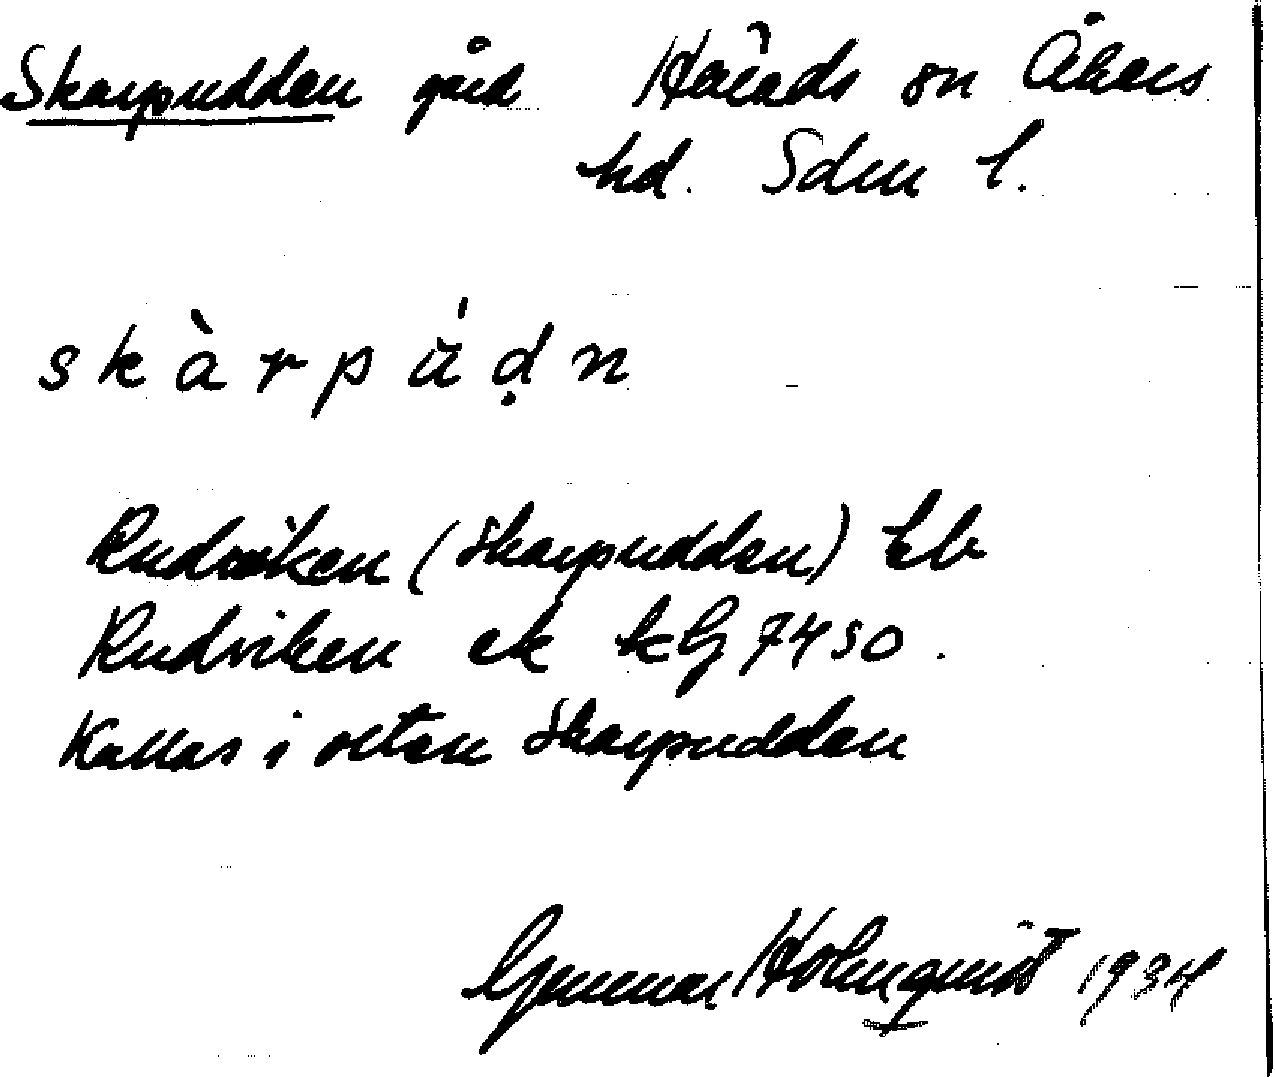 Skarpudden gård Härads sn Åkers
hd. Sdm l.
skàrpu̇́ḍn
Rudviken (Skarpudden) Eb
Rudviken ek kG 7450.
Kallas i orten Skarpudden
Gunnar Holmquist 1934